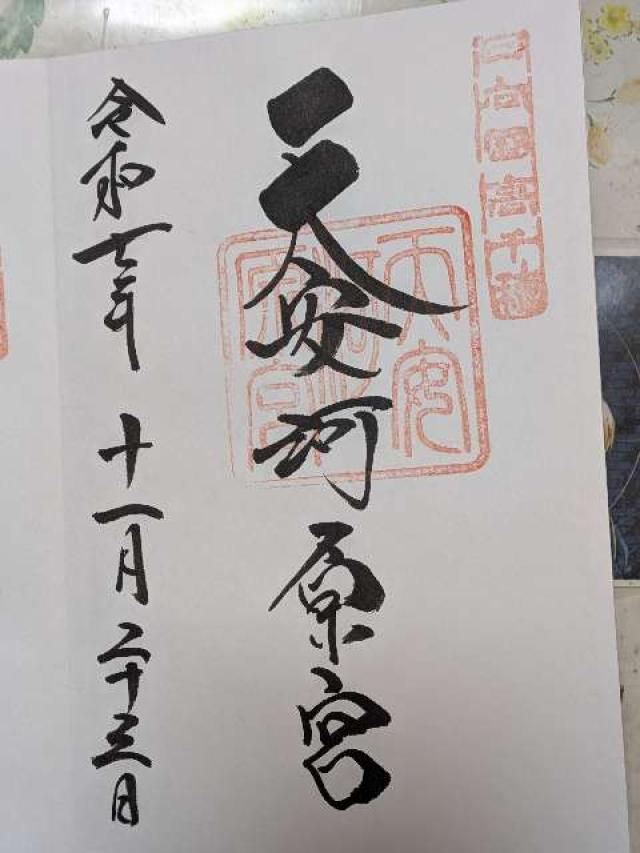 日向国高千穂
天安河原宮
天安河原宮
令和七年十一月二十三日